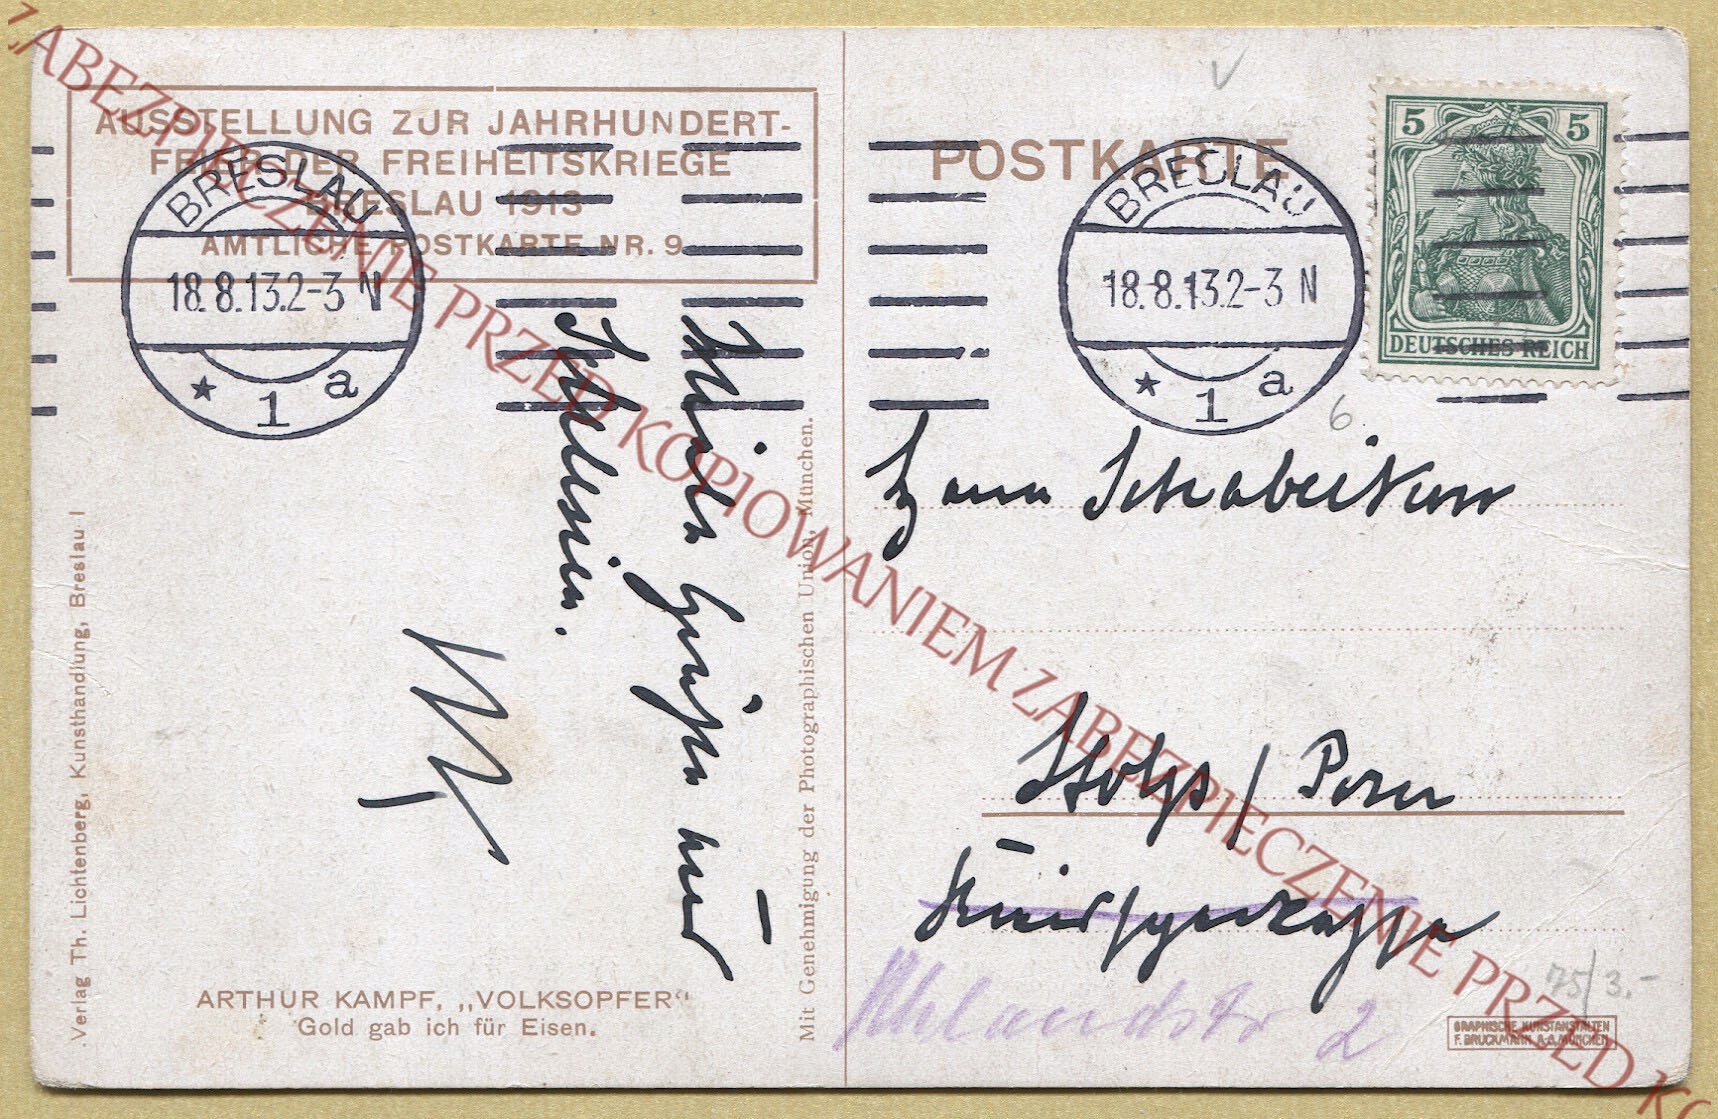 AUSSTELLUNG ZUR JAHRHUNDERT-
FEIER DER FREIHEITSKRIEGE
BRESLAU 1913
AMTLICHE POSTKARTE NR. 9
BRESLAU
18.8.13.2-3 N
* 1 a
POSTKARTE
BRESLAU
18.8.13.2-3 N
* 1 a
5 5
DEUTSCHES REICH
6
Viele Grüße aus
Schlesien.
Stolp / Pom
Kreissparkasse
2
75/3.-
ARTHUR KAMPF, „VOLKSOPFER“
Gold gab ich für Eisen.
Verlag Th. Lichtenberg, Kunsthandlung, Breslau I
Mit Genehmigung der Photographischen Union, München.
GRAPHISCHE KUNSTANSTALTEN
F. BRUCKMANN A-G. MÜNCHEN
ZABEZPIECZENIE PRZED KOPIOWANIEM ZABEZPIECZENIE PRZED KO